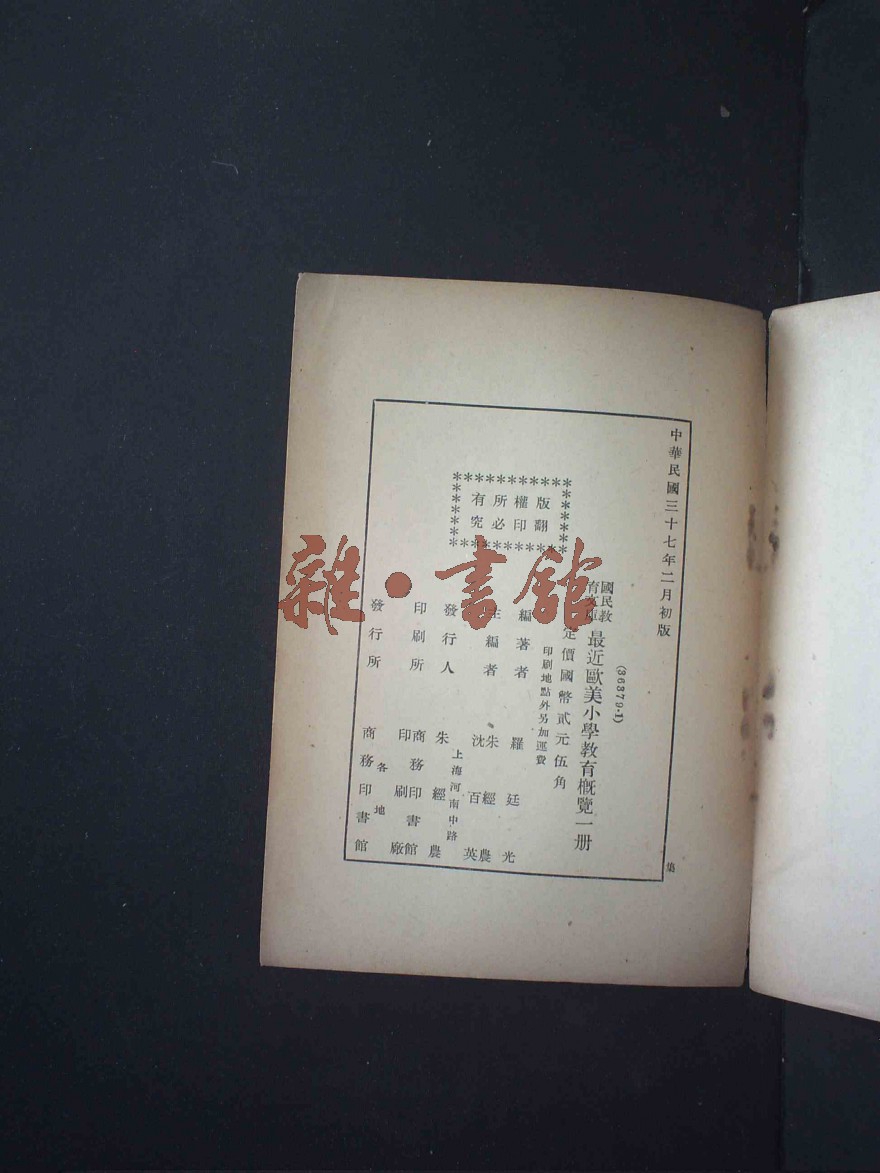 中華民國三十七年二月初版
(36379·1)
國民教
育文庫
最近歐美小學教育概覽一册
定價國幣貳元伍角
印刷地點外另加運費
版權所有
翻印必究
編著者 羅廷光
主編者 朱經農
沈百英
上海河南中路
發行人 朱經農
印刷所 商務印書館
印刷廠
各地
發行所 商務印書館
集
雜·書館